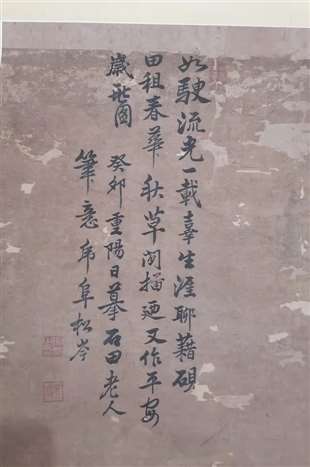 如駛流光一載辜生涯聊藉硯
田租春華秋草閒描又作平安
歲圖 癸卯重陽日摹石田老人
筆意阜松岑